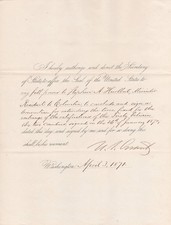 I hereby authorize and direct the Secretary
of State to affix the Seal of the United States to
my full power to Stephen A. Hurlbut, Minister
Resident to Colombia, to conclude and sign a
Convention for extending the time fixed for the
exchange of the ratifications of the Treaty between
the two countries signed on the 26th of January 1870
dated this day and signed by me and for so doing this
shall be his warrant.
U. S. Grant
Washington April 3, 1871.